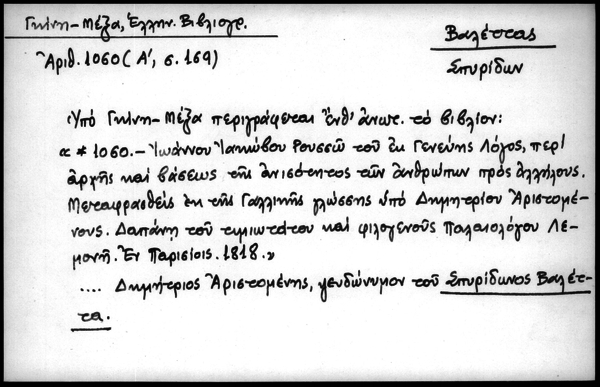 Γκίνη-Μέξα, Ἑλλην. Βιβλιογρ.
Βαλέττας
Ἀριθ. 1060 (Α', σ. 169)
Σπυρίδων
Ὑπό Γκίνη-Μέξα περιγράφεται ἔνθ' ἀνωτ. τό βιβλίον:
«*1060.- Ἰωάννου Ἰακώβου Ρουσσῶ τοῦ ἐκ Γενεύης Λόγος, περί
ἀρχῆς καί βάσεως τῆς ἀνισότητος τῶν ἀνθρώπων πρός ἀλλήλους.
Μεταφρασθείς ἐκ τῆς Γαλλικῆς γλώσσης ὑπό Δημητρίου Ἀριστομέ-
νους. Δαπάνῃ τοῦ τιμιωτάτου καί φιλογενοῦς Παλαιολόγου Λε-
μονῆ. Ἐν Παρισίοις. 1818.»
.... Δημήτριος Ἀριστομένης, ψευδώνυμον τοῦ Σπυρίδωνος Βαλέτ-
τα.